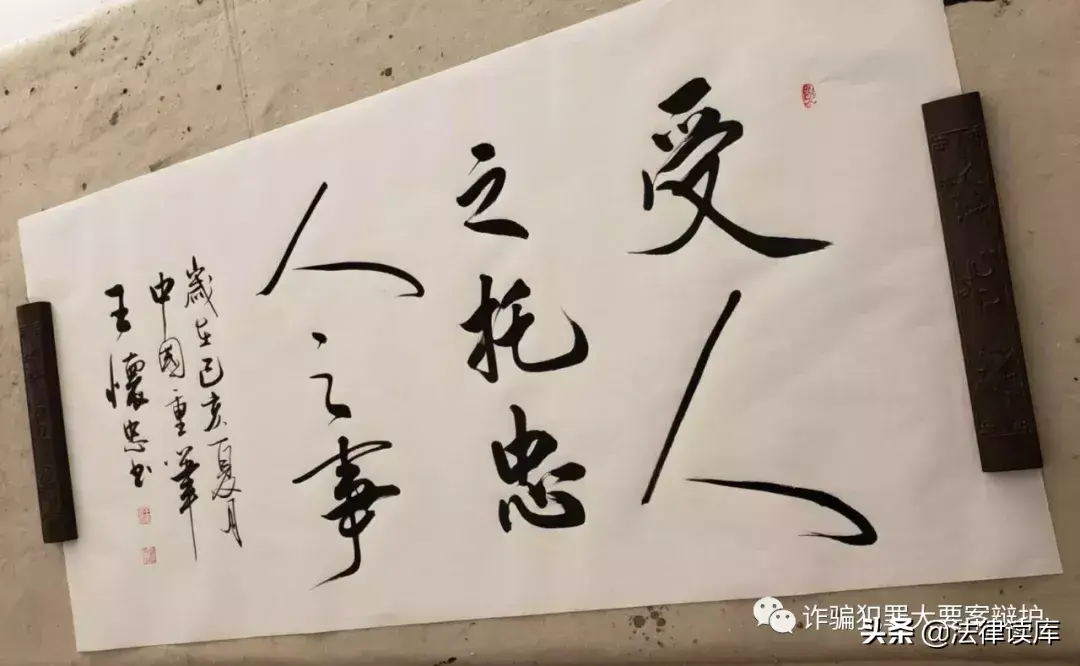 受人
之托忠
人之事
歲在己亥夏月
中國重筆
王懷忠书
诈骗犯罪大要案辩护
头条 @法律读库